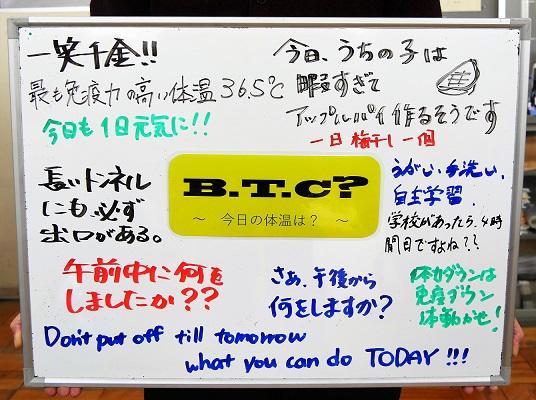 一笑千金!!
最も免疫力の高い体温36.5℃
今日も1日元気に!!
今日、うちの子は
暇すぎて
アップルパイ作るそうです
一日梅干し一個
長いトンネル
にも必ず
出口がある。
B.T.C?
～ 今日の体温は? ～
うがい、手洗い、
自主学習.
学校があったら、4時
間目ですよね??
午前中に何を
しましたか??
さぁ、午後から
何をしますか?
体力ダウンは
免疫ダウン
体動かせ!
Don't put off till tomorrow
what you can do TODAY!!!